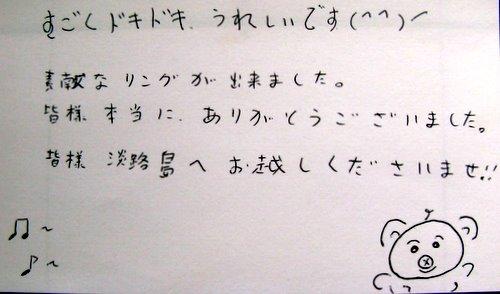 すごくドキドキ、うれしいです(^^)/
素敵なリングが出来ました。
皆様本当に、ありがとうございました。
皆様 淡路島へお越しくださいませ!!